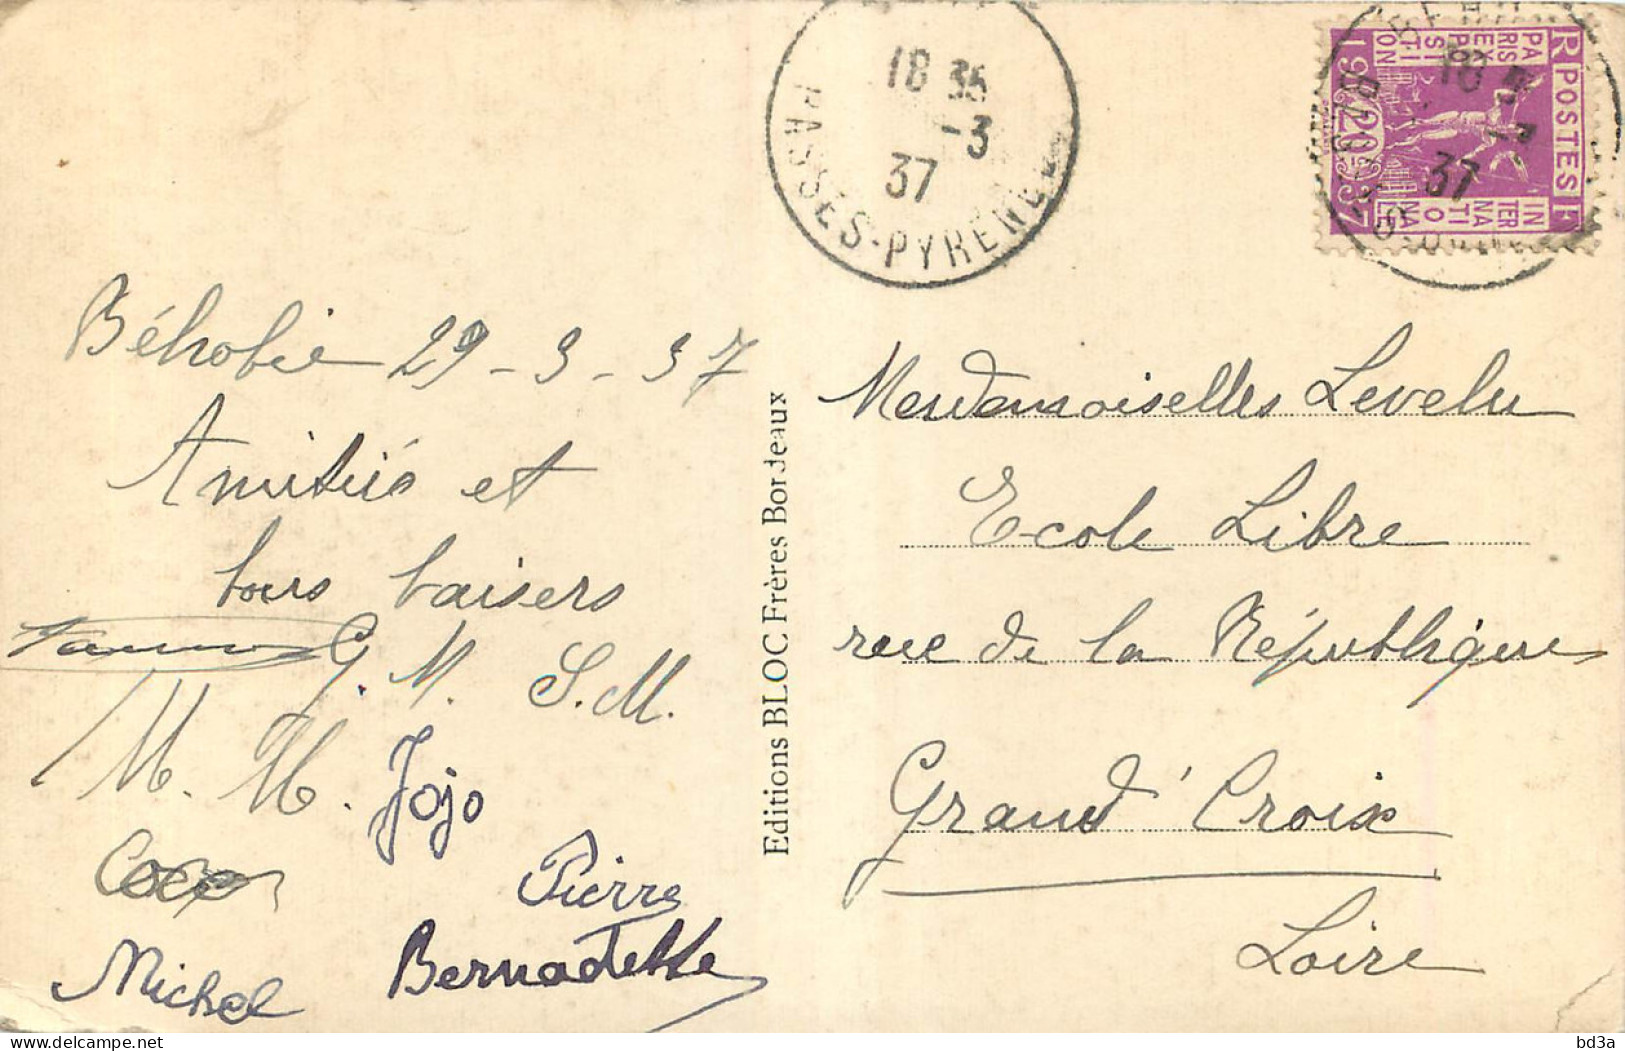 Béhobie 29-3-37
Amitiés et
bons baisers
G. M. S. M.
M. M. Jojo
Coco Pierre
Michel Bernadette
Editions BLOC Frères Bordeaux
18 35
-3
37
BASSES-PYRENEES
RF POSTES
PARIS EXPOSITION INTERNATIONALE
1937
20
18
37
Mesdemoiselles Levelu
Ecole Libre
rue de la République
Grand'Croix
Loire
bd3a